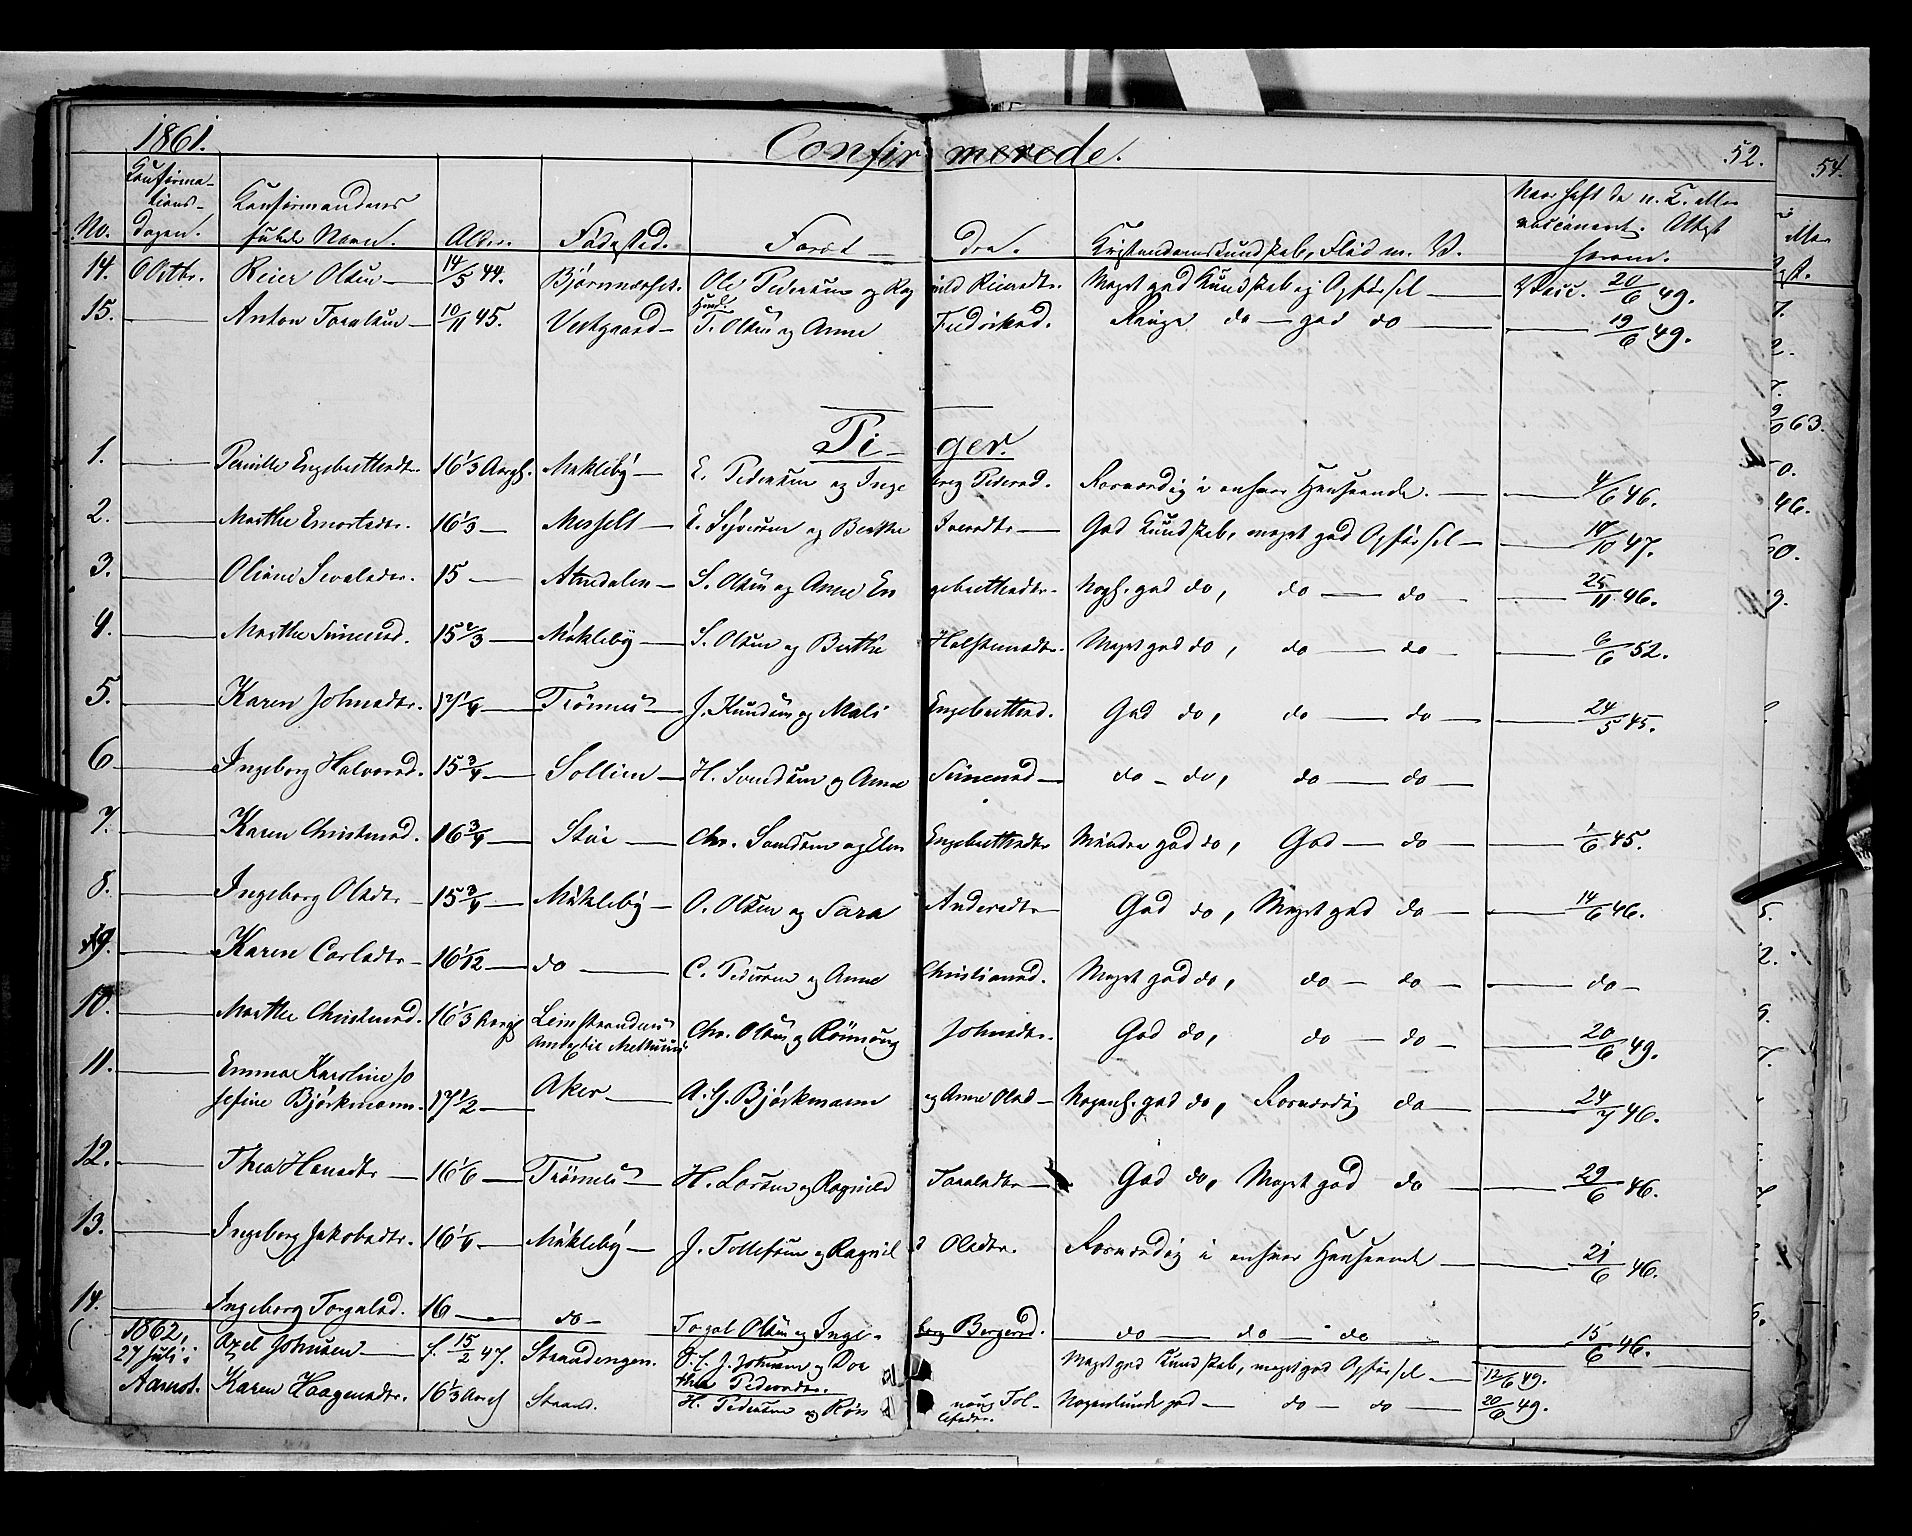 1861.
Confirmerede.
52.
No.
Konfirma-
tions-
dagen.
Konfirmandens
fulde Navn.
Alder.
Fødested.
Foræl-
dre.
Kristendomskundskab, Flid m. V.
Naar haft de n. K. eller
vaccineret. Attest
herom.
14. Oktbr. Reier Olsen — 14/5 44. Bjørnnæsset. Ole Pedersen og Ragnild Reiersdtr. Meget god Kundskab og Opførsel — Vacc. 20/6 49.
15. — Anton Toralsen — 10/11 45. Vestgaard — T. Olsen og Anne Fredriksd. do — god do — 19/6 49.
Piger.
1. — Pernille Engebrettsdtr. 16 1/3 Aargl. Møkleby — E. Pedersen og Ingebreg Pedersd. Rosværdig i enhver Henseende. — 4/6 46.
2. — Marthe Emertsdtr. 16 1/3 — Messelt — E. Syversen og Berthe Iversdtr — God Kundskab, meget god Opførsel — 14/10 47.
3. — Oliane Sevalsdtr. 15 — Atnedalen — S. Olsen og Anne Engebrettsdtr. Nogl. god do, do — do — 25/11 46.
4. — Marthe Simensd. 15 2/3 — Møkleby — S. Olsen og Berthe Halstensdtr. Meget god do, do — do — 6/6 52.
5. — Karen Johnsdtr. 17 1/4 — Trønnes — J. Knudsen og Mali Engebrettsd. God do, do — do — 24/5 45.
6 — Ingeborg Halvorsd. 15 3/4 — Sollien — H. Svendsen og Anne Simensd — do — do, do — do —
7. — Karen Christensd. 16 3/4 — Stai — Chr. Svendsen og Elen Engebrettsdtr Mindre god do, God — do — 1/6 45.
8. — Ingeborg Olsdtr — 15 3/4 — Møkleby — O. Olsen og Sara Andersdtr — God do, Meget god do — 14/6 46.
9. — Karen Carlsdtr — 16 1/12 — do — C. Pedersen og Anne Christiansd. Meget god do, do — do — do —
10. — Marthe Christensd. 16 1/3 Aargl Leinstrandens
Anexe til Melhuus Chr. Olsen og Rønnoug Johnsdtr. God do, do — do — 20/6 49.
11. — Emma Karoline Jo
sefine Bjørkmann. 17 1/2 — Aker — A. G. Bjørkmann og Anne Olsd — Nogenl. god do, Rosværdig do — 24/7 46.
12. — Thea Hansdtr — 16 1/6 — Trønnes — H. Larsen og Ragnild Toralsdtr — God do, Meget god do — 29/6 46.
13. — Ingeborg Jakobsdtr. 16 1/4 — Møkleby — J. Tollefsen og Ragnild Olsdtr. Rosværdig i enhver Henseende — 21/6 46.
14. — Ingeborg Torgalsd. 16 — do — Torgal Olsen og Ingeborg Bergersd. do — do — do — 15/6 46.
1862,
27 Juli i Axel Johnsen — f. 15/2 47. Strandengen. J. Johnsen og Dor
thea Pedersdtr. Meget god Kundskab, meget god Opførsel — 12/6 49.
Aamot. Karen Haagensdtr. 16 1/3 Aargl Strand. H. Pedersen og Røn noug Tol-
lefsdtr. Nogenlunde god — do — do — 20/6 49.
54.
63.
46.